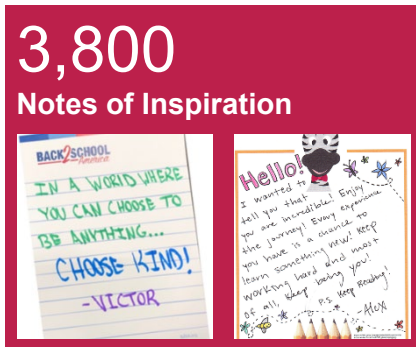 3,800
Notes of Inspiration
BACK2SCHOOL
America
IN A WORLD WHERE
YOU CAN CHOOSE TO
BE ANYTHING...
CHOOSE KIND!
-VICTOR
Hello!
I wanted to
tell you that
you are incredible! Enjoy
the journey! Every experience
you have is a chance to
learn something new! Keep
working hard and most
of all, keep being you!
P.S. Keep Reading!
-Alex